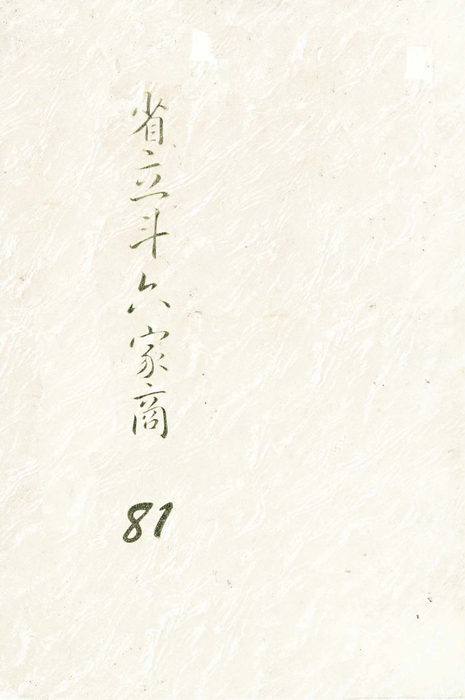 省立斗六家商
81